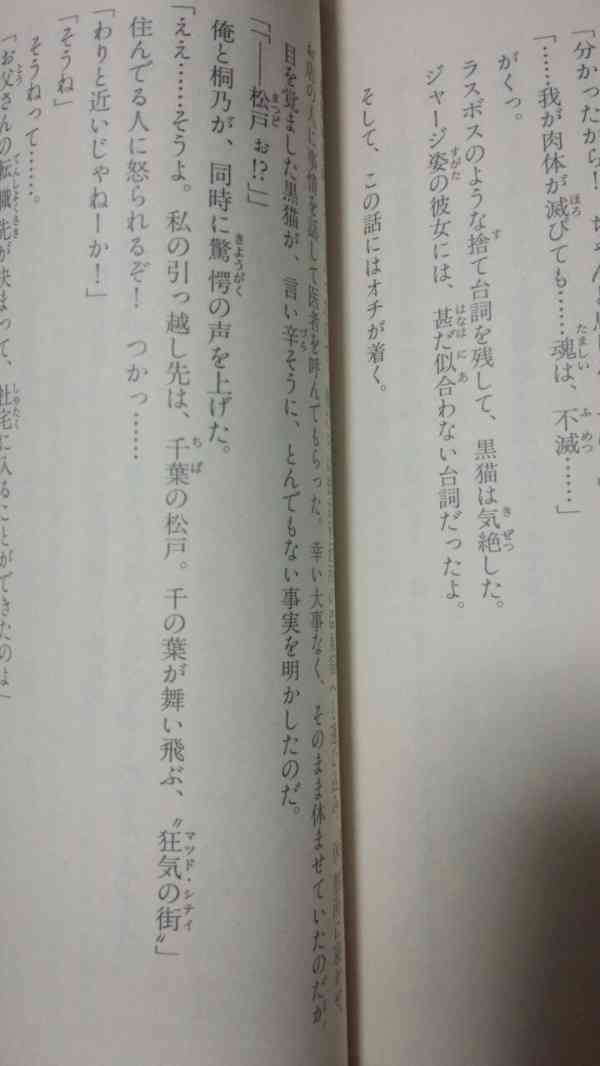 「分かったから!
「……我が肉体が滅びても……魂は、不滅……」
がくっ。
ラスボスのような捨て台詞を残して、黒猫は気絶した。
ジャージ姿の彼女には、甚だ似合わない台詞だったよ。
そして、この話にはオチが着く。
の人に事情を話して医者を呼んでもらった。幸い大事なく、そのまま休ませていたのだが、
目を覚ました黒猫が、言い辛そうに、とんでもない事実を明かしたのだ。
「「――松戸ぉ!?」」
俺と桐乃が、同時に驚愕の声を上げた。
「ええ……そうよ。私の引っ越し先は、千葉の松戸。千の葉が舞い飛ぶ、〝狂気の街〟」
マツド・シティ
住んでる人に怒られるぞ! つかっ……
「わりと近いじゃねーか!」
「そうね」
そうねって……。
「お父さんの転職先が決まって、社宅に入ることができたのは」